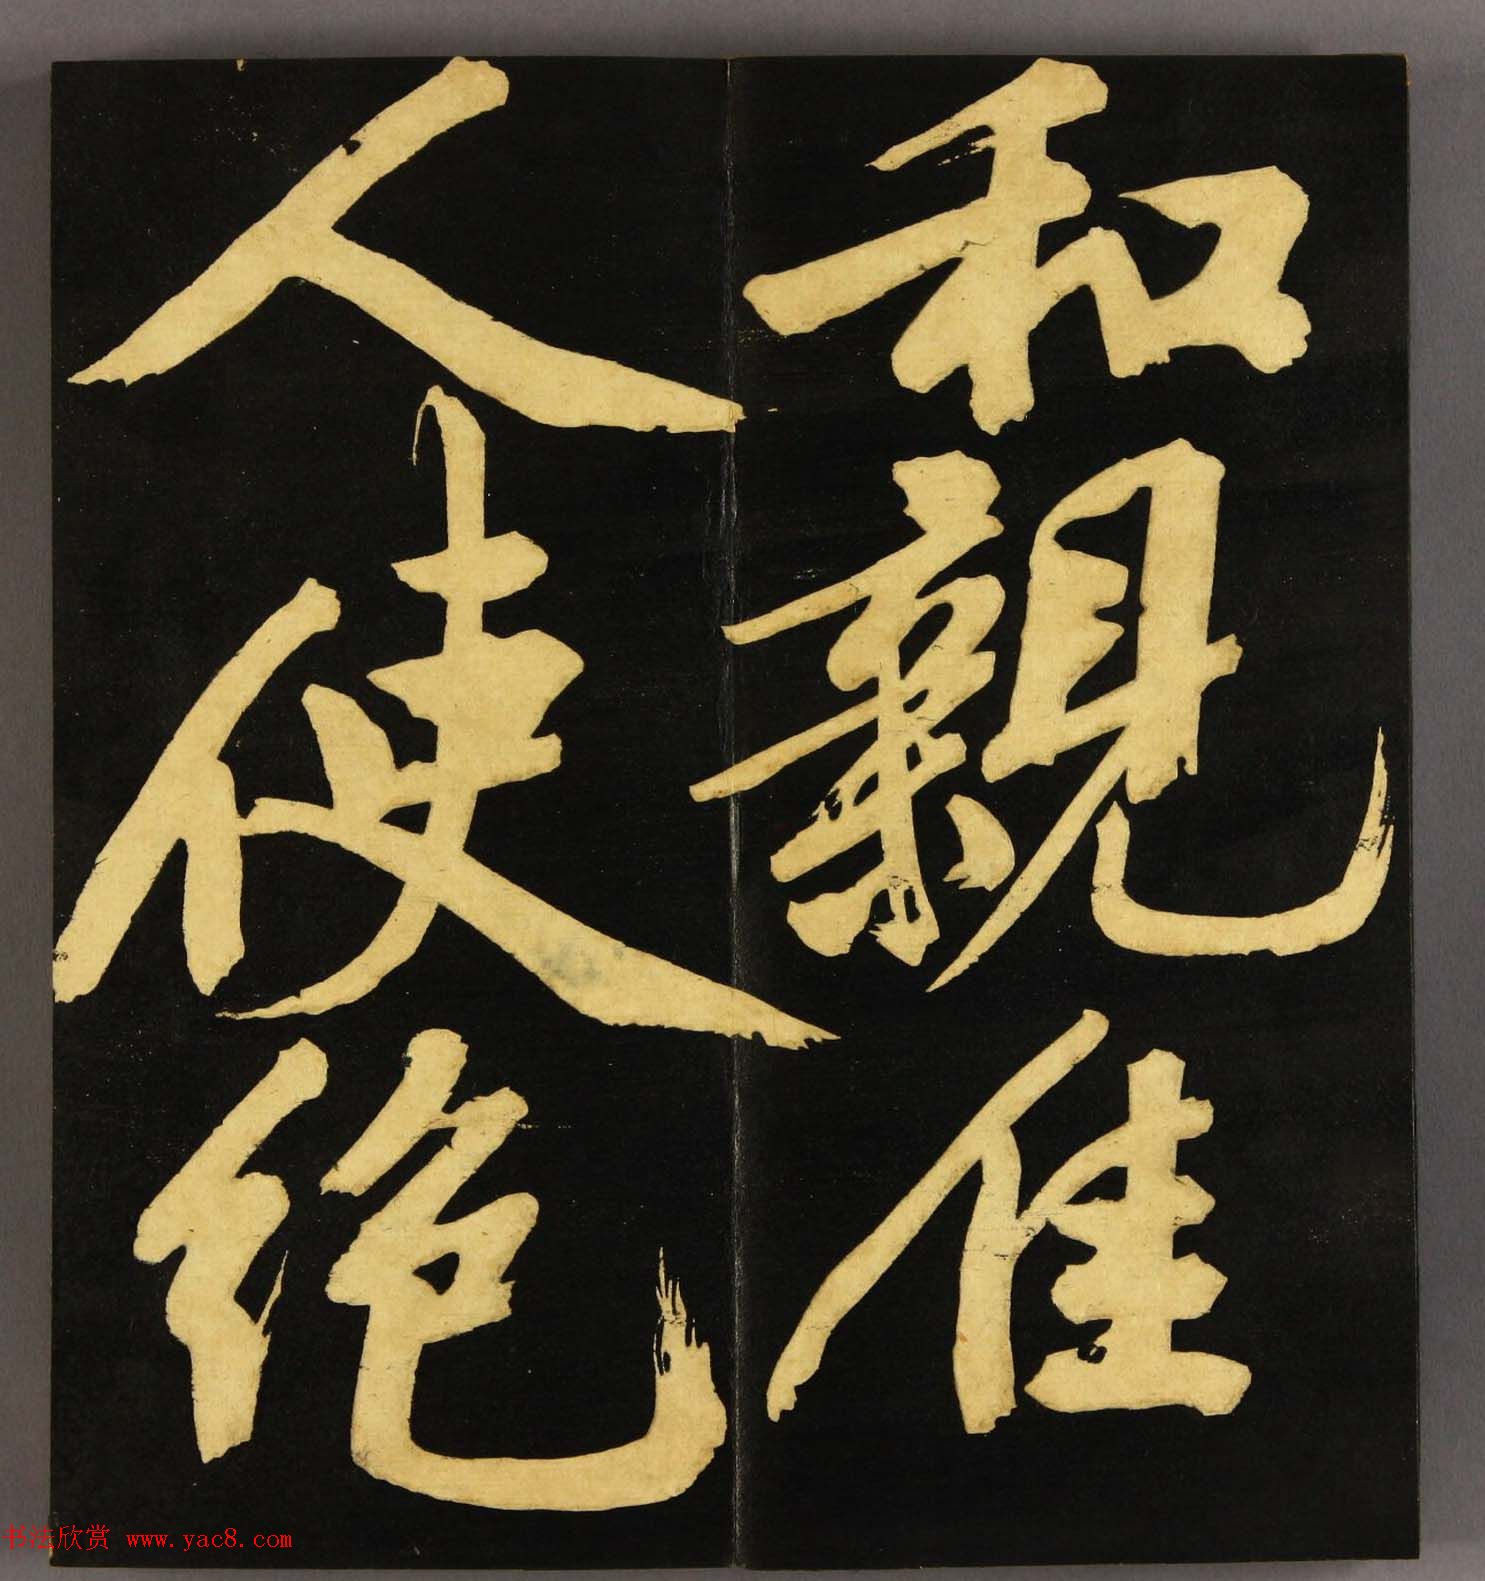 和親佳
人使絶
书法欣赏 www.yac8.com